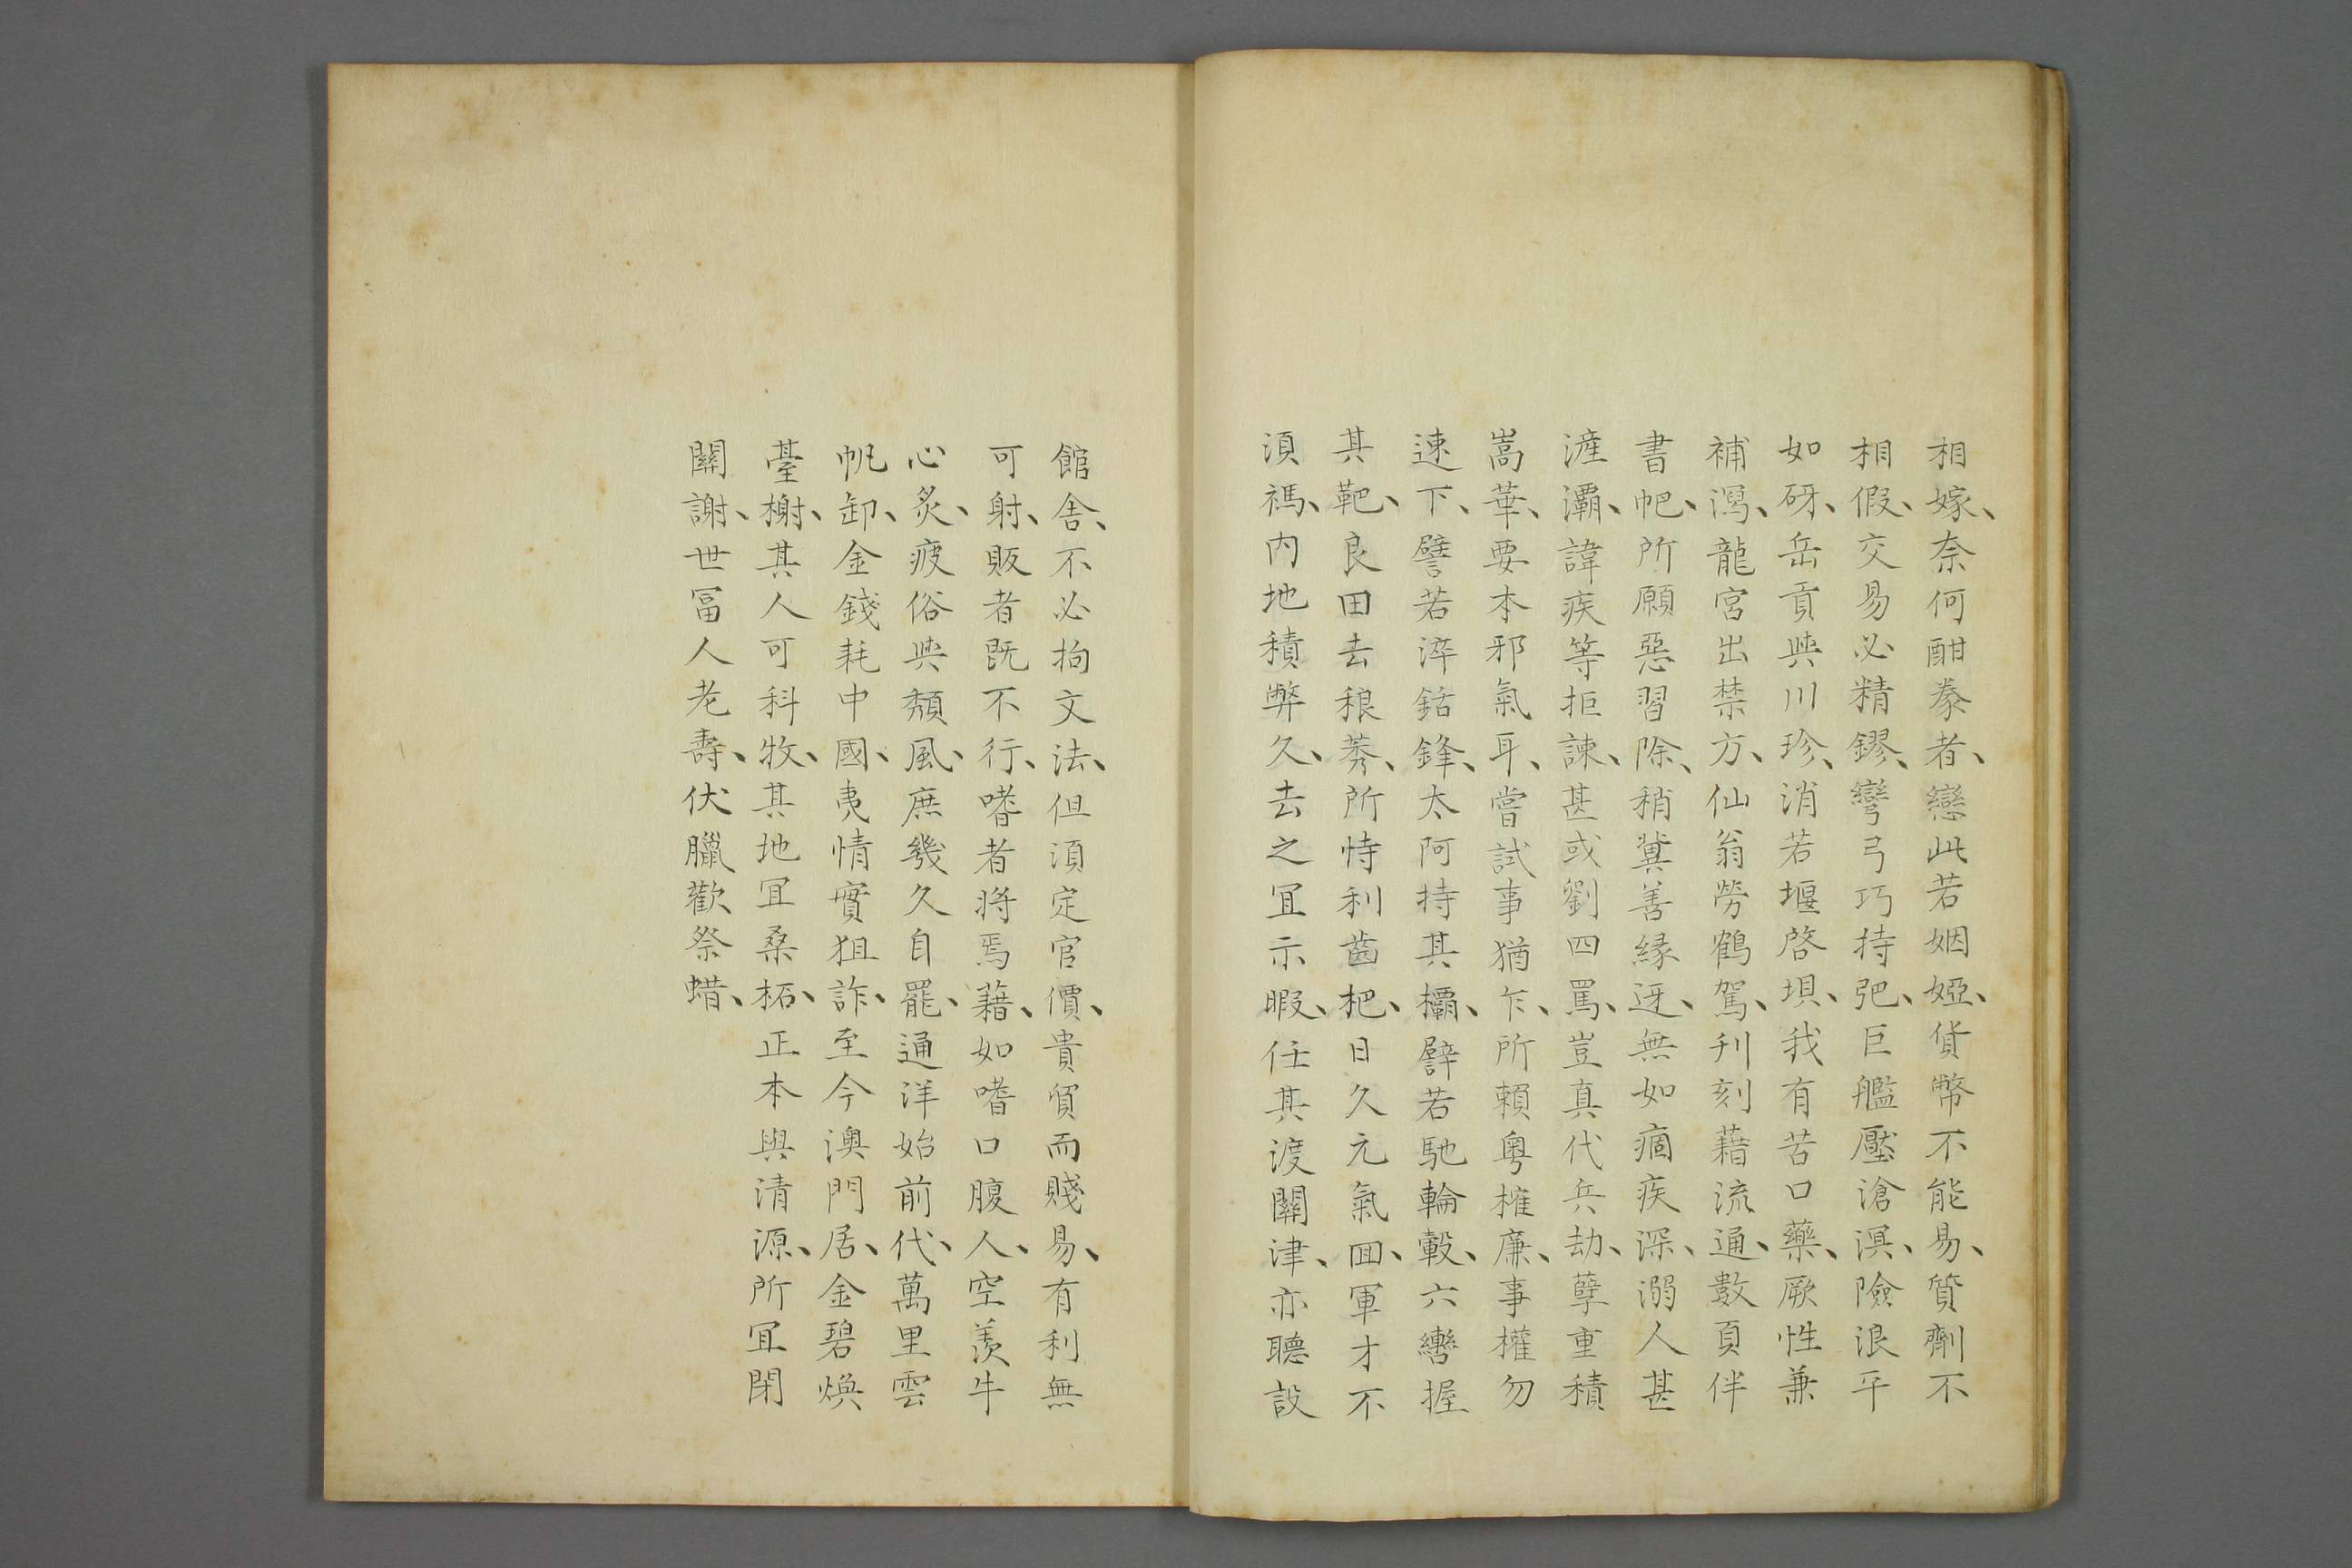 相嫁、奈何酣豢者、戀此若姻婭、貨幣不能易、質劑不
相假、交易必精鏐、彎弓巧持弝、巨艦壓滄溟、險浪平
如砑、岳貢與川珍、消若堰啓垻、我有苦口藥、厥性兼
補瀉、龍宮出禁方、仙翁勞鶴駕、刊刻藉流通、數頁伴
書帊、所願惡習除、稍冀善緣迓、無如痼疾深、溺人甚
滻灞、諱疾等拒諫、甚或劉四罵、豈真代兵劫、孽重積
嵩華、要本邪氣耳、嘗試事猶乍、所賴粵榷廉、事權勿
速下、譬若淬銛鋒、太阿持其欛、譬若馳輪轂、六轡握
其靶、良田去稂莠、所恃利齒杷、日久元氣囬、軍才不
湏禡、內地積弊久、去之冝示暇、任其渡關津、亦聽設
館舍、不必拘文法、但湏定官價、貴貿而賤易、有利無
可射、販者既不行、嗜者將焉藉、如嗜口腹人、空羨牛
心炙、疲俗與頹風、庶幾久自罷、通洋始前代、萬里雲
帆卸、金錢耗中國、夷情實狙詐、至今澳門居、金碧煥
臺榭、其人可科牧、其地冝桑柘、正本與清源、所冝閉
關謝、世冨人老壽、伏臘歡祭蜡、